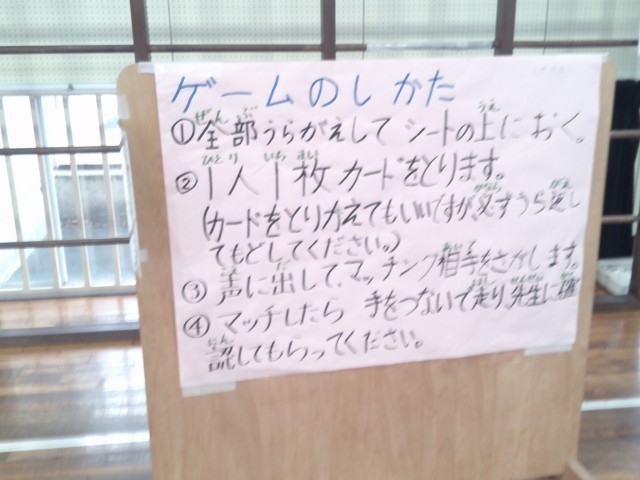 ゲームのしかた
①全部うらがえして シートの上におく。
②1人1枚カードをとります。
(カードをとりかえてもいいですが、必ずうら返し
てもどしてください。)
③声に出して、マッチング相手をさがします。
④マッチしたら 手をつないで走り、先生に確
認してもらってください。